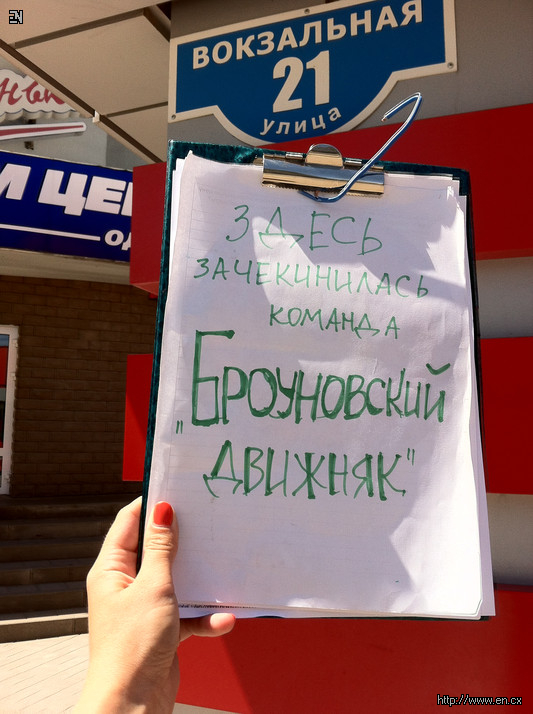 EN
ВОКЗАЛЬНАЯ
21
улица
ЗДЕСЬ
ЗАЧЕКИНИЛАСЬ
КОМАНДА
„БРОУНОВСКИЙ
ДВИЖНЯК"
http://www.en.cx